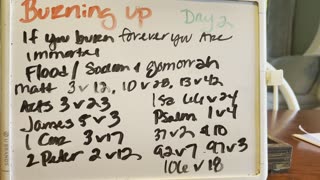 Burning up
Day 2
If you burn forever you Are
immortal
Flood / Sodom & Gomorrah
matt 3 v 12, 10 v 28, 13 v 42
Acts 3 v 23
Isa 66 v 24
James 5 v 3
Psalm 1 v 4
1 Cor 3 v 17
37 v 2 & 10
2 Peter 2 v 12
92 v 7 97 v 3
106 v 18